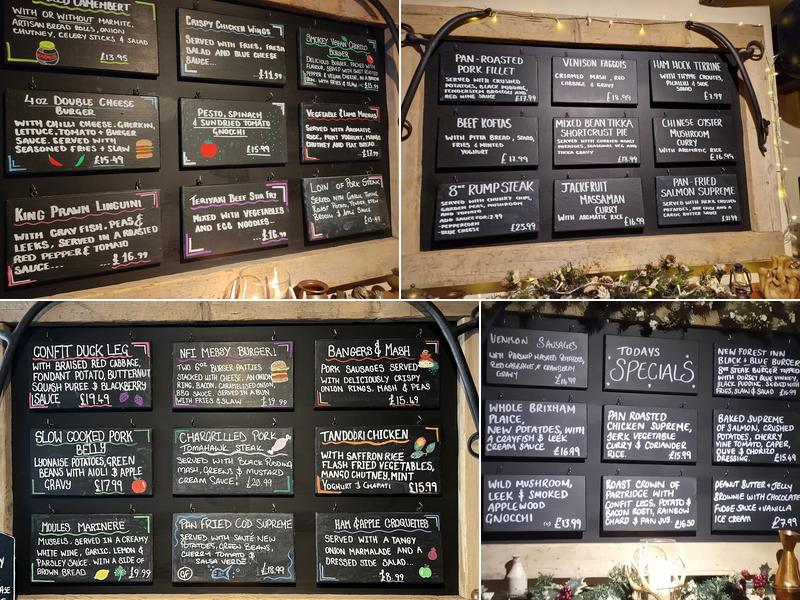 CAMEMBERT
WITH OR WITHOUT MARMITE,
ARTISAN BREAD ROLLS, ONION
CHUTNEY, CELERY STICKS & SALAD
£13.95
CRISPY CHICKEN WINGS
SERVED WITH FRIES, FRESH
SALAD AND BLUE CHEESE
SAUCE...
£14.99
SMOKEY VEGAN CHORIZO
BURGER
£15.99
4oz DOUBLE CHEESE
BURGER
WITH CHILLI CHEESE, GHERKIN,
LETTUCE, TOMATO + BURGER
SAUCE. SERVED WITH
SEASONED FRIES + SLAW
£15.49
PESTO, SPINACH
& SUNDRIED TOMATO
GNOCCHI
£15.99
VEGETABLE & LAMB MADRAS
SERVED WITH AROMATIC
RICE, MINT YOGHURT, MANGO
CHUTNEY AND FLAT BREAD
£17.99
KING PRAWN LINGUINI
WITH CRAY FISH, PEAS &
LEEKS, SERVED IN A ROASTED
RED PEPPER & TOMATO
SAUCE... £16.99
TERIYAKI BEEF STIR FRY
MIXED WITH VEGETABLES
AND EGG NOODLES...
£16.99
LOIN OF PORK STEAK
SERVED WITH GARLIC THYME
ROAST POTATO, TENDER STEM
BROCOLI & APPLE SAUCE
PAN-ROASTED
PORK FILLET
SERVED WITH CRUSHED
POTATOES, BLACK PUDDING,
TENDERSTEM BROCCOLI AND
RED WINE SAUCE £17.99
VENISON FAGGOTS
CREAMED MASH, RED
CABBAGE & GRAVY
£18.99
HAM HOCK TERRINE
WITH THYME CROUTES,
PICALILLI & SIDE
SALAD
£7.99
BEEF KOFTAS
WITH PITTA BREAD, SALAD,
FRIES & MINTED
YOGHURT
£17.99
MIXED BEAN TIKKA
SHORTCRUST PIE
SERVED WITH CHARRED ROAST
POTATOES, SEASONAL VEG AND
TIKKA GRAVY
£18.99
CHINESE OYSTER
MUSHROOM
CURRY
WITH AROMATIC RICE
£16.99
8oz RUMP STEAK
SERVED WITH CHUNKY CHIPS,
GARDEN PEAS, MUSHROOM
AND TOMATO
ADD SAUCE FOR £2.99
-PEPPERCORN
-BLUE CHEESE
£23.99
JACKFRUIT
MASSAMAN
CURRY
WITH AROMATIC RICE
£16.99
PAN-FRIED
SALMON SUPREME
SERVED WITH HERB CRUSHED
POTATOES, BOK CHOI AND A
GARLIC BUTTER SAUCE
CONFIT DUCK LEG
WITH BRAISED RED CABBAGE,
FONDANT POTATO, BUTTERNUT
SQUASH PUREE & BLACKBERRY
SAUCE £19.49
NFI MESSY BURGER!
TWO 6oz BURGER PATTIES
STACKED WITH CHEESE, AN ONION
RING, BACON, CARAMELIZED ONION
BBQ SAUCE. SERVED IN A BUN
WITH FRIES & SLAW £19.99
BANGERS & MASH
PORK SAUSAGES SERVED
WITH DELICIOUSLY CRISPY
ONION RINGS, MASH & PEAS
£15.49
SLOW COOKED PORK
BELLY
LYONAISE POTATOES, GREEN
BEANS WITH AIOLI & APPLE
GRAVY £17.99
CHARGRILLED PORK
TOMAHAWK STEAK
SERVED WITH BLACK PUDDING
MASH, GREENS & MUSTARD
CREAM SAUCE £20.99
TANDOORI CHICKEN
WITH SAFFRON RICE
FLASH FRIED VEGETABLES,
MANGO CHUTNEY, MINT
YOGHURT & CHAPATI £15.99
MOULES MARINERE
MUSSELS SERVED IN A CREAMY
WHITE WINE, GARLIC, LEMON &
PARSLEY SAUCE. WITH A SIDE OF
BROWN BREAD £9.99
PAN FRIED COD SUPREME
SERVED WITH SAUTÉ NEW
POTATOES, GREEN BEANS,
CHERRY TOMATO &
SALSA VERDE
GF £18.99
HAM & APPLE CROQUETTES
SERVED WITH A TANGY
ONION MARMALADE AND A
DRESSED SIDE SALAD...
£8.99
VENISON SAUSAGES
WITH PARSNIP MASHED POTATOES,
RED CABBAGE & CRANBERRY
GRAVY
£16.99
TODAYS
SPECIALS
NEW FOREST INN
BLACK + BLUE BURGER
8oz STEAK BURGER TOPPED
WITH DORSET BLUE VINNEY,
BLACK PUDDING. SERVED WITH
FRIES, SLAW & SALAD £16.99
WHOLE BRIXHAM
PLAICE,
NEW POTATOES, WITH
A CRAYFISH & LEEK
CREAM SAUCE £16.99
PAN ROASTED
CHICKEN SUPREME,
JERK VEGETABLE
CURRY & CORIANDER
RICE. £15.99
BAKED SUPREME
OF SALMON, CRUSHED
POTATOES, CHERRY
VINE TOMATO, CAPER,
OLIVE & CHORIZO
DRESSING. £15.49
WILD MUSHROOM,
LEEK & SMOKED
APPLEWOOD
GNOCCHI
£13.99
ROAST CROWN OF
PARTRIDGE WITH
CONFIT LEGS, POTATO &
BACON ROSTI, RAINBOW
CHARD & PAN JUS. £16.50
PEANUT BUTTER + JELLY
BROWNIE WITH CHOCOLATE
FUDGE SAUCE + VANILLA
ICE CREAM £7.99